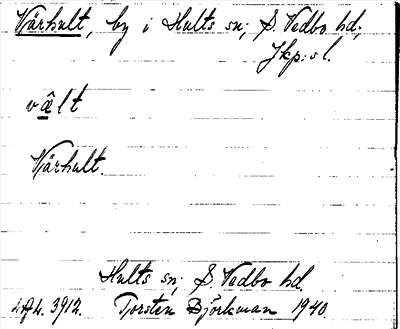 Vårhult, by i Hults sn; S. Vedbo hd;
Jkp:s l.
vålt
Vårhult.
Hults sn; S. Vedbo hd.
Torsten Björkman 1940.